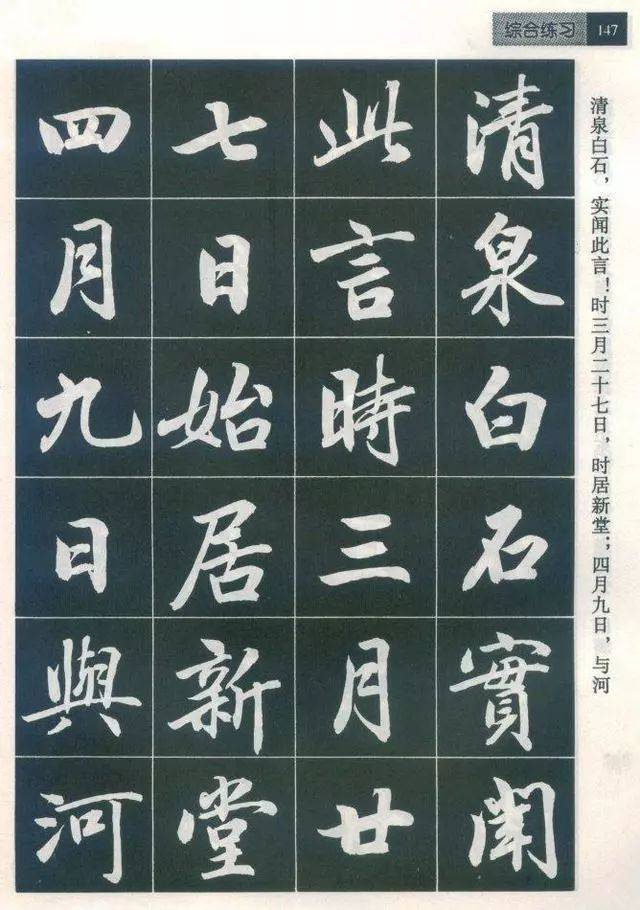 综合练习 147
清泉白石實闻
此言時三月廿
七日始居新堂
四月九日與河
清泉白石，实闻此言！时三月二十七日，时居新堂；四月九日，与河